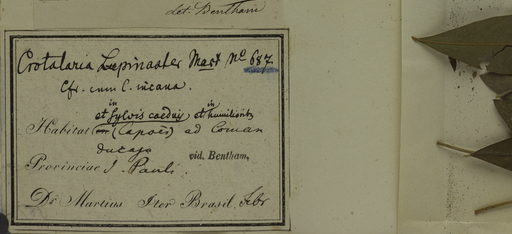 det. Bentham
Crotalaria Lupinaster Mart No 687.
Cfr. cum C. incana.
in in
et Sylvis caeduis et humilioribs
Habitat (Capoës) ad Coman
ducaja
vid. Bentham,
Provinciae S. Pauli
Dr. Martius Iter Brasil. Febr